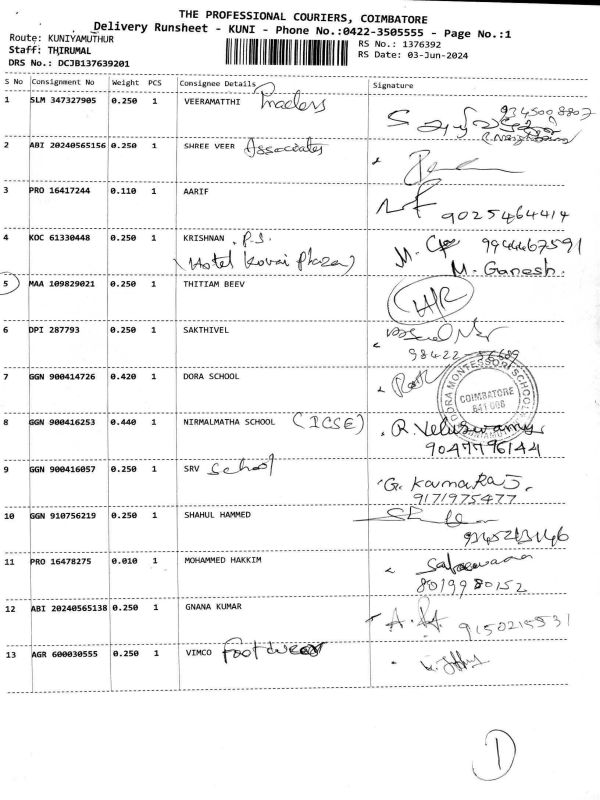 THE PROFESSIONAL COURIERS, COIMBATORE
Delivery Runsheet - KUNI - Phone No.:0422-3505555 - Page No.:1
Route: KUNIYAMUTHUR
RS No.: 1376392
Staff: THIRUMAL
RS Date: 03-Jun-2024
DRS No.: DCJB137639201
S No Consignment No Weight PCS Consignee Details Signature
1 SLM 347327905 0.250 1 VEERAMATTHI Traders
9345008807
2 ABI 20240565156 0.250 1 SHREE VEER Associates
3 PRO 16417244 0.110 1 AARIF
9025464414
4 KOC 61330448 0.250 1 KRISHNAN . P.S. 9944467591
(Hotel Kovai Plaza) M. Ganesh.
5 MAA 109829021 0.250 1 THITIAM BEEV
6 DPI 287793 0.250 1 SAKTHIVEL
98422-56689
7 GGN 900414726 0.420 1 DORA SCHOOL
DORA MONTESSORI SCHOOL
COIMBATORE
641 008
8 GGN 900416253 0.440 1 NIRMALMATHA SCHOOL (ICSE) R. Veluswamy
9047796144
9 GGN 900416057 0.250 1 SRV School
G. KamaRaJ.
9171975477
10 GGN 910756219 0.250 1 SHAHUL HAMMED
11 PRO 16478275 0.010 1 MOHAMMED HAKKIM
8019980152
12 ABI 20240565138 0.250 1 GNANA KUMAR
9150215531
13 AGR 600030555 0.250 1 VIMCO footwear
1